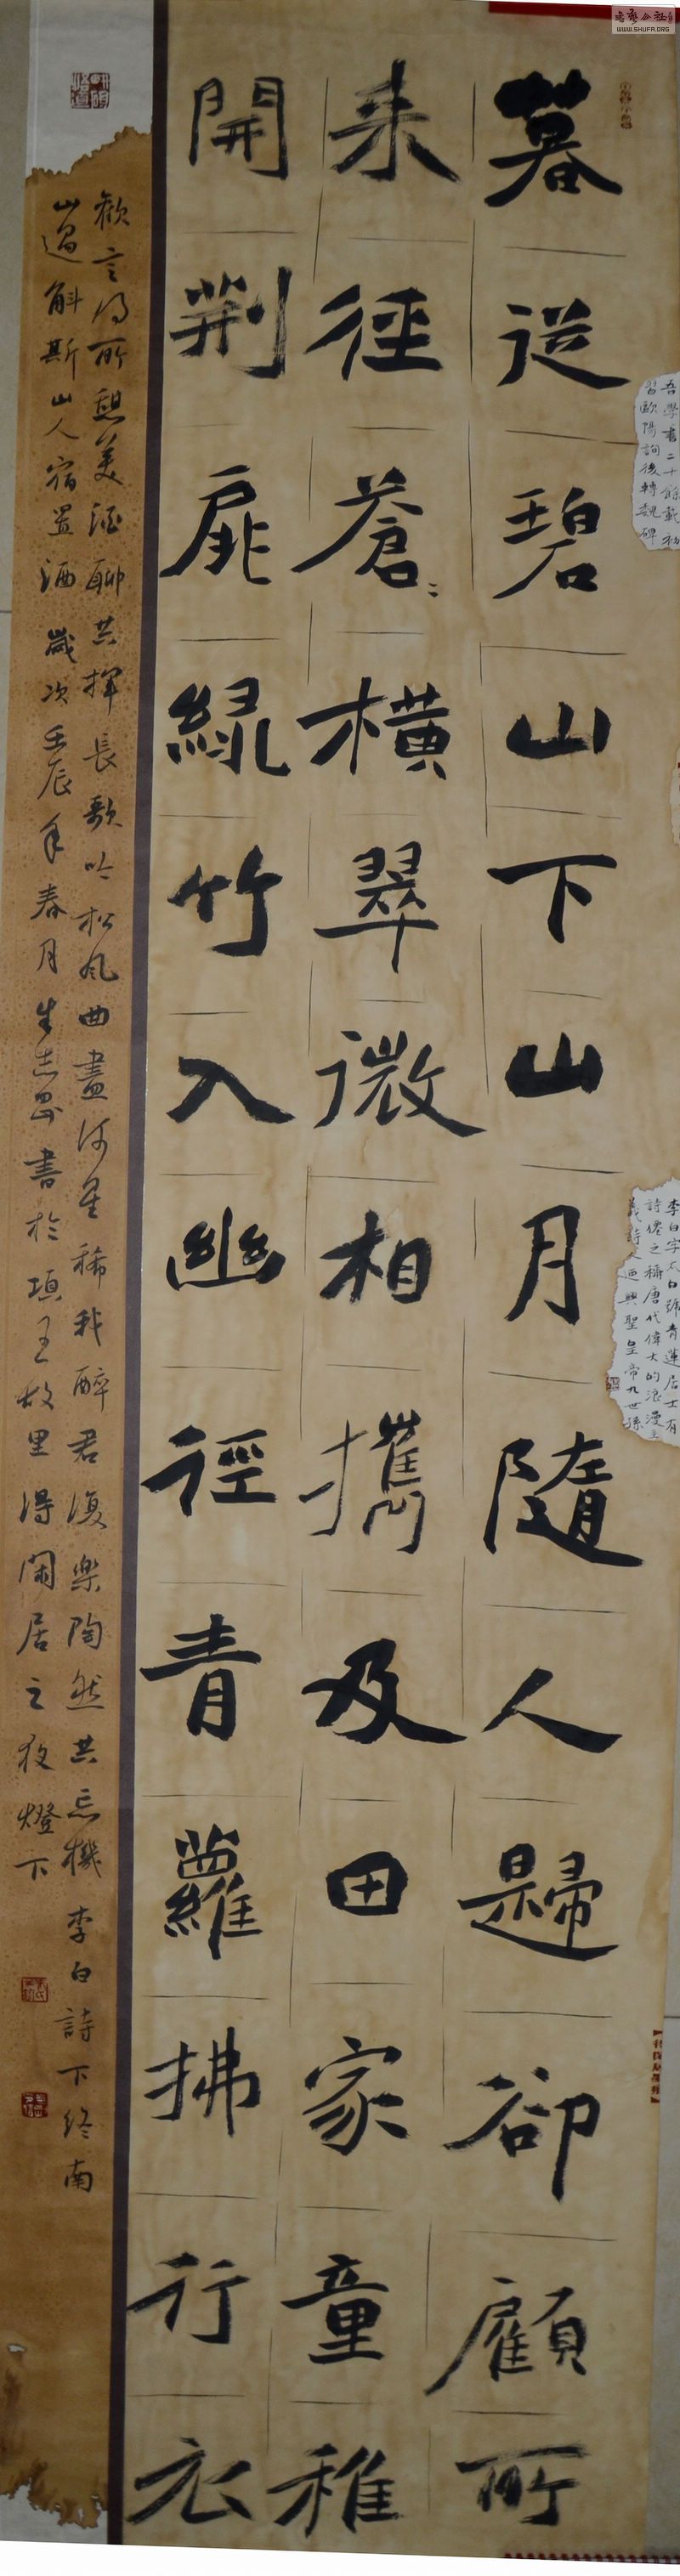 書法公社
WWW.SHUFA.ORG
吾學書二十餘載初
習歐陽詢後轉魏碑
李白字太白號青蓮居士有
詩僊之稱唐代偉大的浪漫主
義詩人迺興聖皇帝九世孫
暮從碧山下山月隨人歸卻顧所
来徑蒼〻橫翠微相攜及田家童稚
開荆扉綠竹入幽徑青蘿拂行衣
歡言得所憩美酒聊共揮長歌吟松風曲盡河星稀我醉君復樂陶然共忘機 李白詩下终南
山過斛斯山人宿置酒 歲次壬辰年春月 書於項王故里得閑居之夜燈下